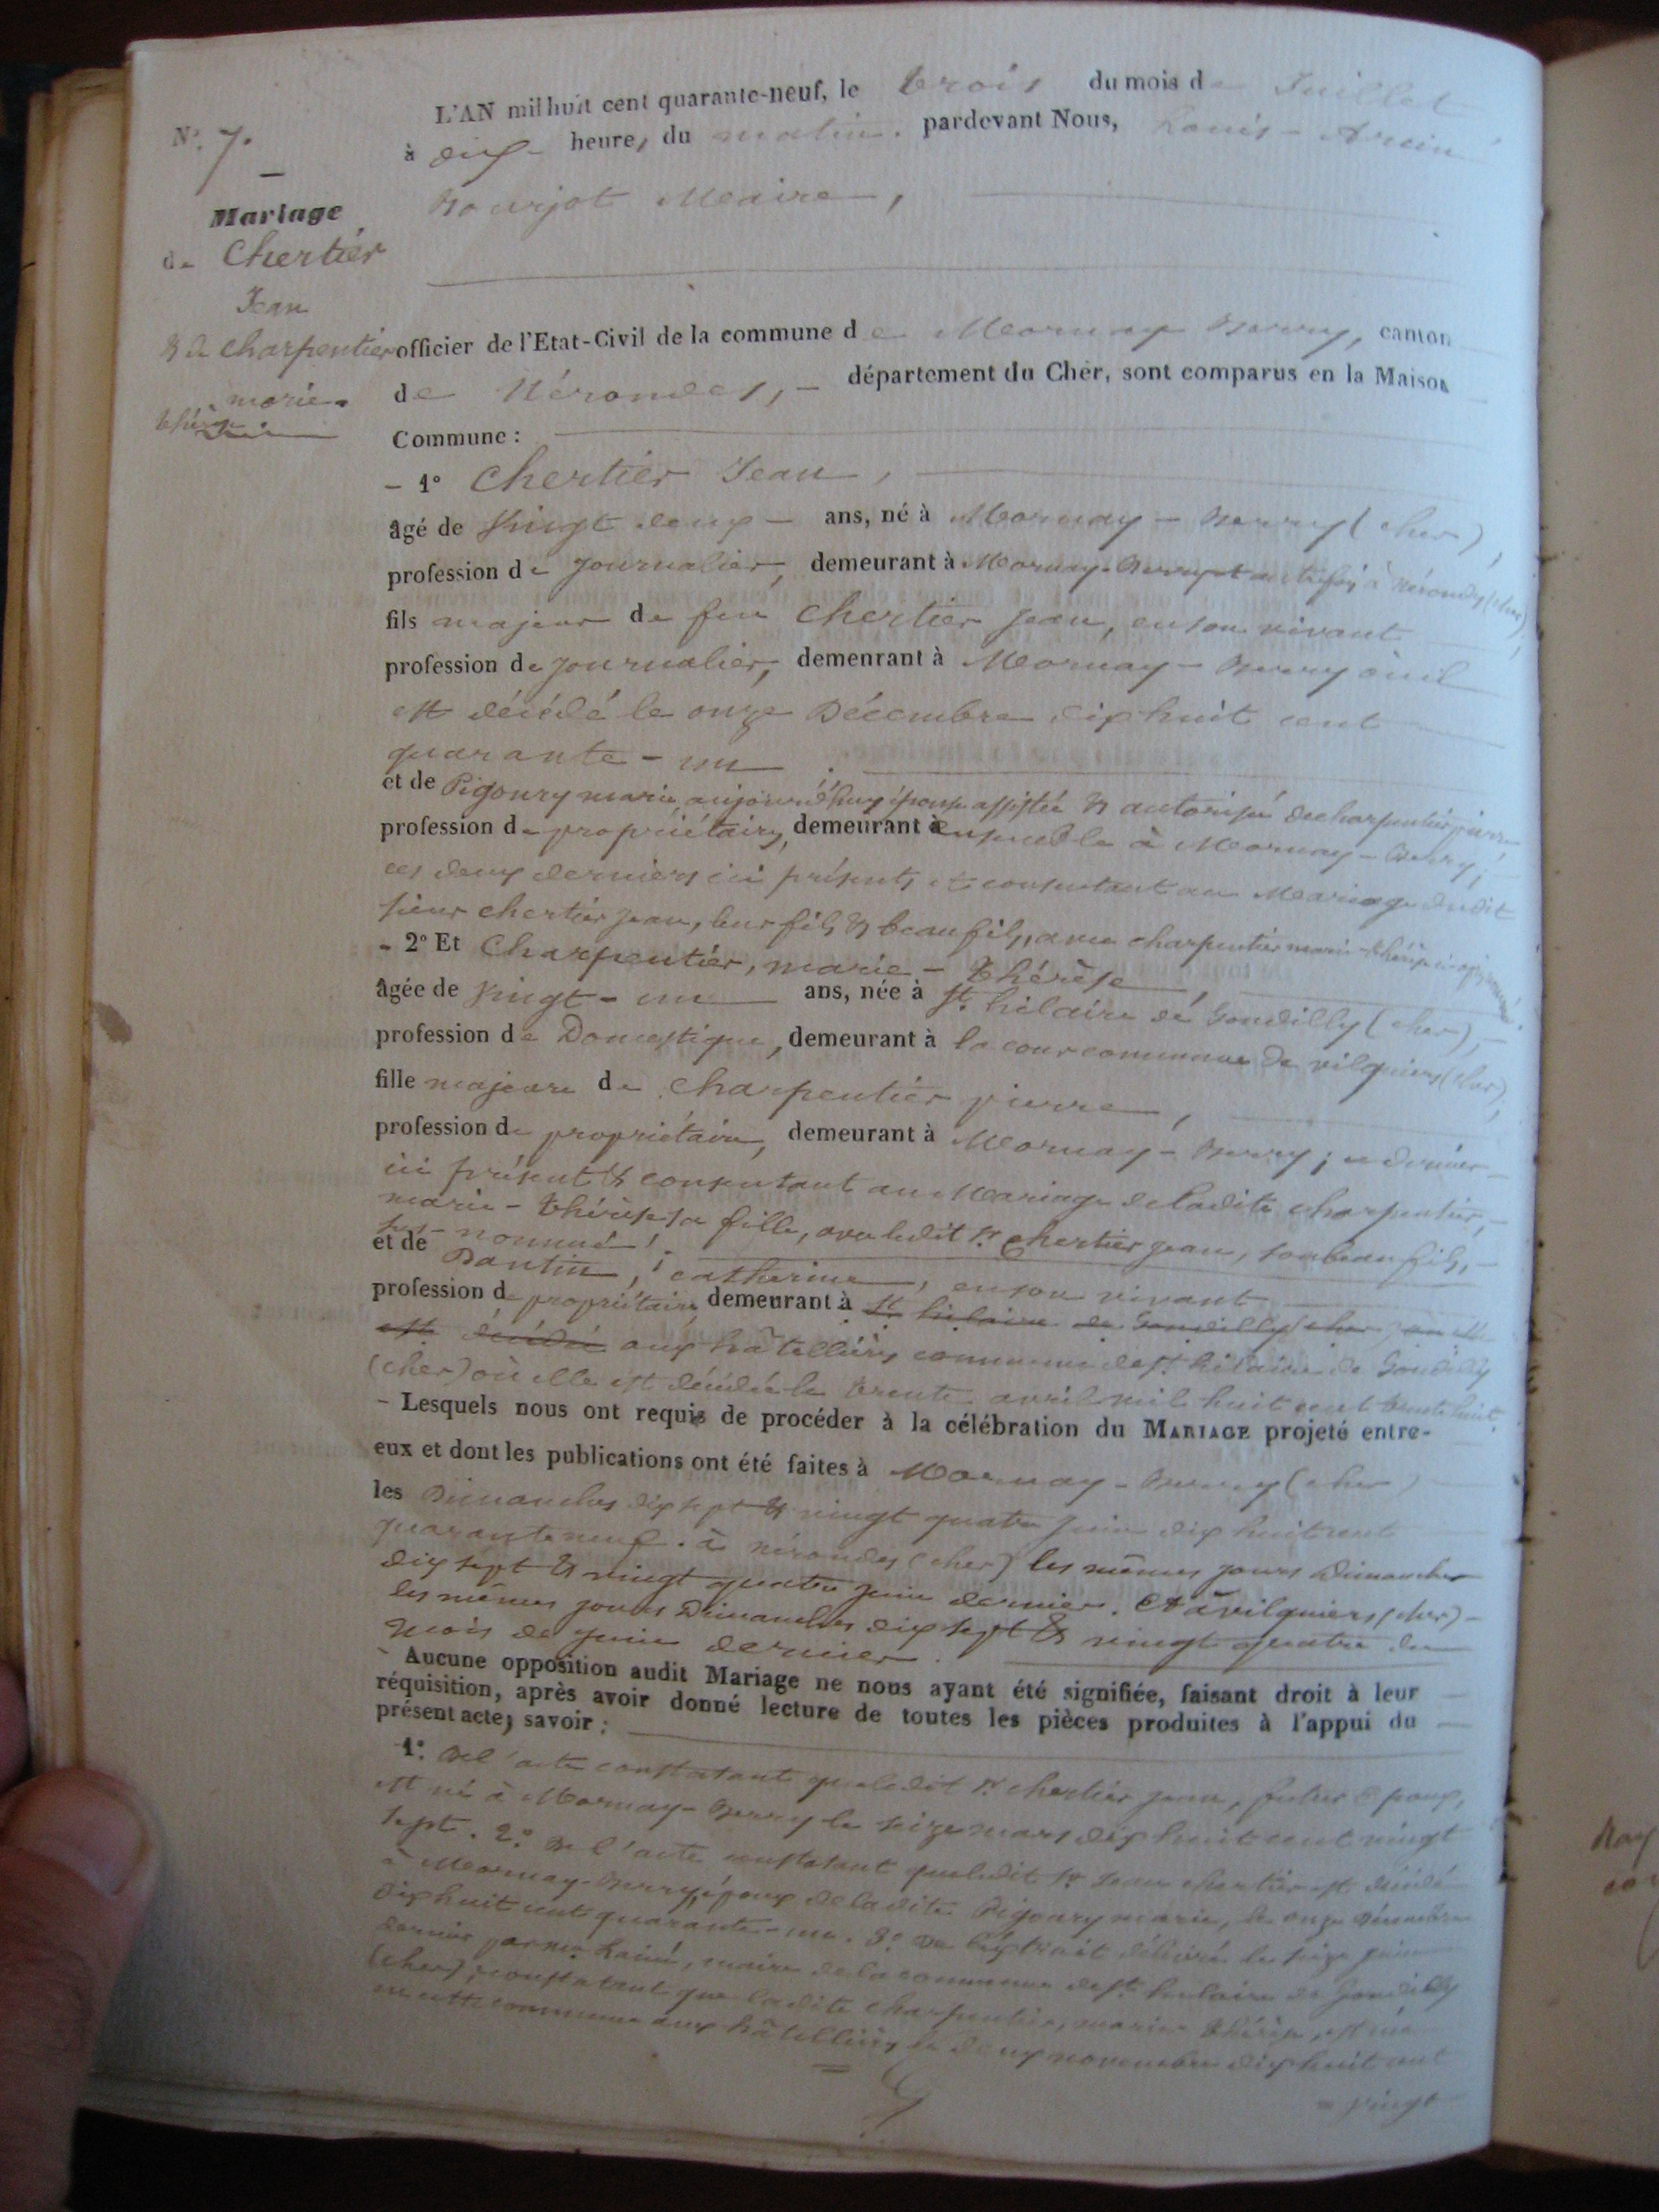 N.° 7.
Mariage
de Chertier
Jean
& de Charpentier
marie-
thérèse
L'AN mil huit cent quarante-neuf, le trois du mois de Juillet
à dix heure, du matin. pardevant Nous, Louis-
Bourjot Maire,
officier de l'Etat-Civil de la commune de Mornay Berry, canton
de Nérondes, département du Cher, sont comparus en la Maison
Commune :
- 1° Chertier Jean,
âgé de Vingt deux - ans, né à Mornay - Berry (cher),
profession de Journalier, demeurant à Mornay-Berry et autrefois à Nérondes (cher),
fils majeur de feu Chertier Jean, en son vivant
profession de journalier, demeurant à Mornay - Berry où il
est décédé le onze Décembre dix huit cent
quarante - un
et de Pigoury marie, aujourd'huy épouse assistée & autorisée de charpentier pierre
profession de propriétaires, demeurant à ensemble à Mornay - Berry;
ces deux derniers ici présents et consentant au Mariage dudit
sieur chertier Jean, leur fils & beau fils, avec charpentier marie thérèse ci après nommée.
- 2° Et Charpentier, marie - thérèse,
âgée de Vingt - un ans, née à St. hilaire de Gondilly (cher),
profession de Domestique, demeurant à la cour commune de vilquiers (cher),
fille majeure de Charpentier pierre,
profession de propriétaire, demeurant à Mornay - Berry; ce dernier
ici présent & consentant au Mariage de ladite charpentier,
marie - thérèse sa fille, avec ledit Sr. chertier Jean, son beau fils,
sus-nommé.
et de Dantin, catherine, en son vivant
profession de propriétaire, demeurant à St. hilaire de Gondilly (cher) où elle
est décédée aux hâtelliers commune de St. hilaire de Gondilly
(cher) où elle est décédée le trente avril mil huit cent trente huit.
- Lesquels nous ont requis de procéder à la célébration du MARIAGE projeté entre-
eux et dont les publications ont été faites à Mornay - Berry (cher)
les Dimanches dix sept & vingt quatre juin dix huit cent
quarante neuf. à nérondes (cher) les mêmes jours Dimanches
dix sept & vingt quatre juin dernier. Et à vilquiers (cher) -
les mêmes jours Dimanches dix sept & vingt quatre du
mois de juin dernier.
- Aucune opposition audit Mariage ne nous ayant été signifiée, faisant droit à leur
réquisition, après avoir donné lecture de toutes les pièces produites à l'appui du
présent acte, savoir :
1.° De l'acte constatant que ledit Sr. chertier Jean, futur Epoux,
est né à Mornay - Berry le seize mars dix huit cent vingt
sept. 2.° De l'acte constatant que ledit Sr. Jean chertier est décédé
à Mornay-Berry, époux de ladite Pigoury marie, le onze Décembre
dix huit cent quarante - un. 3.° De l'extrait délivré le seize juin
dernier par mr. Lainé, maire de la commune de St. hilaire de Gondilly
(cher), constatant que ladite charpentier, marie thérèse, est née
en cette commune aux hâtelliers le deux novembre dix huit cent
= vingt